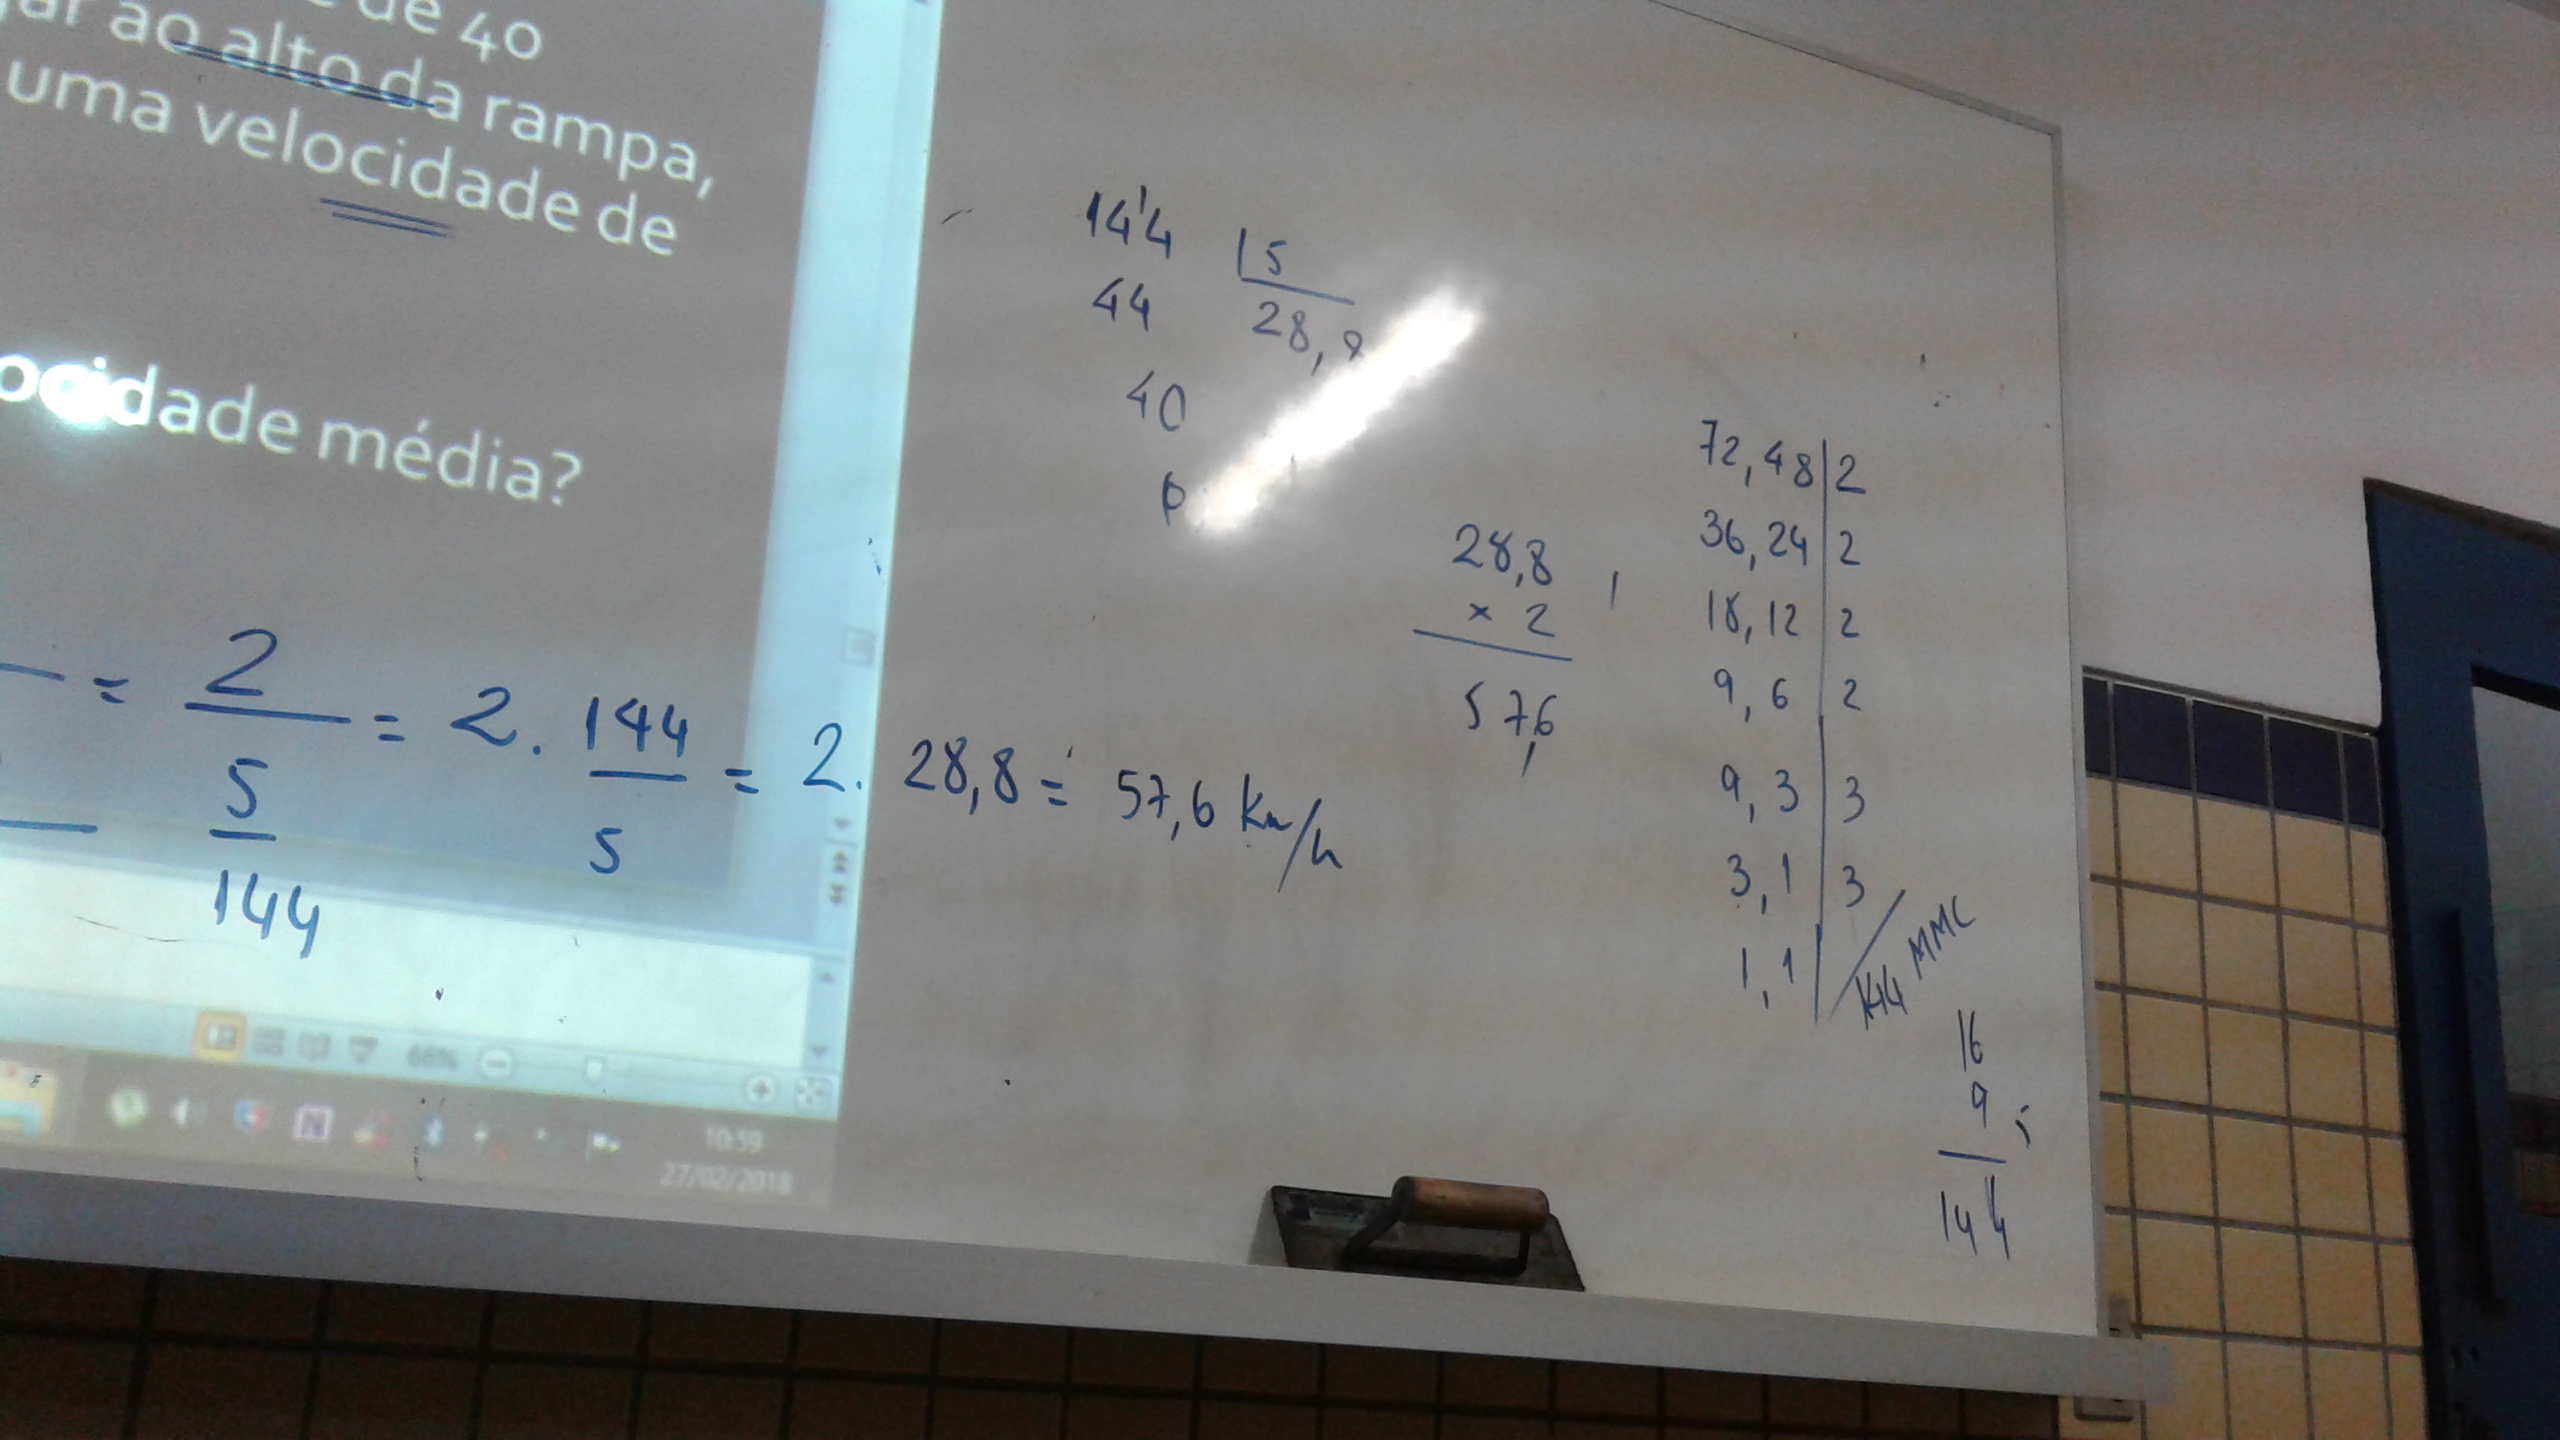 de 40
ao alto da rampa,
uma velocidade de
ocidade média?
= 2/(5/144) = 2 . 144/5 = 2 . 28,8 = 57,6 Km/h
144 | 5
44 28,8
40
0
28,8
x 2
57,6
72, 48 | 2
36, 24 | 2
18, 12 | 2
9, 6 | 2
9, 3 | 3
3, 1 | 3
1, 1 | 144 MMC
16
9
144
66%
10:59
27/02/2018